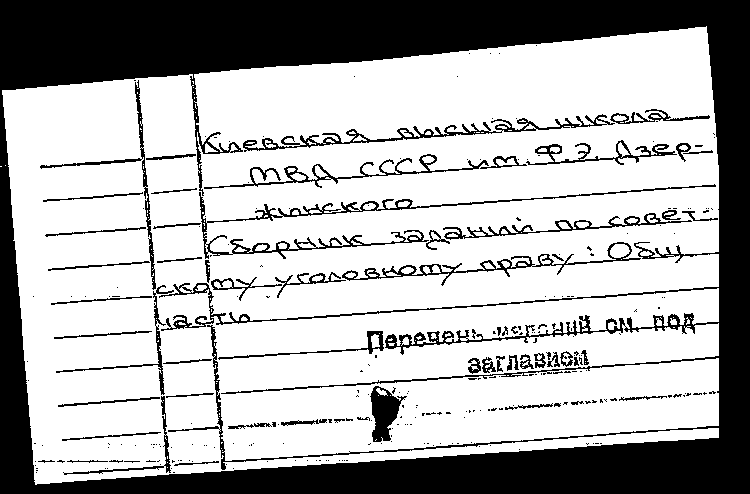 Киевская высшая школа
МВД СССР им. Ф.Э. Дзер-
жинского
Сборник заданий по совет-
скому уголовному праву: Общ.
часть
Перечень изданий см. под
заглавием